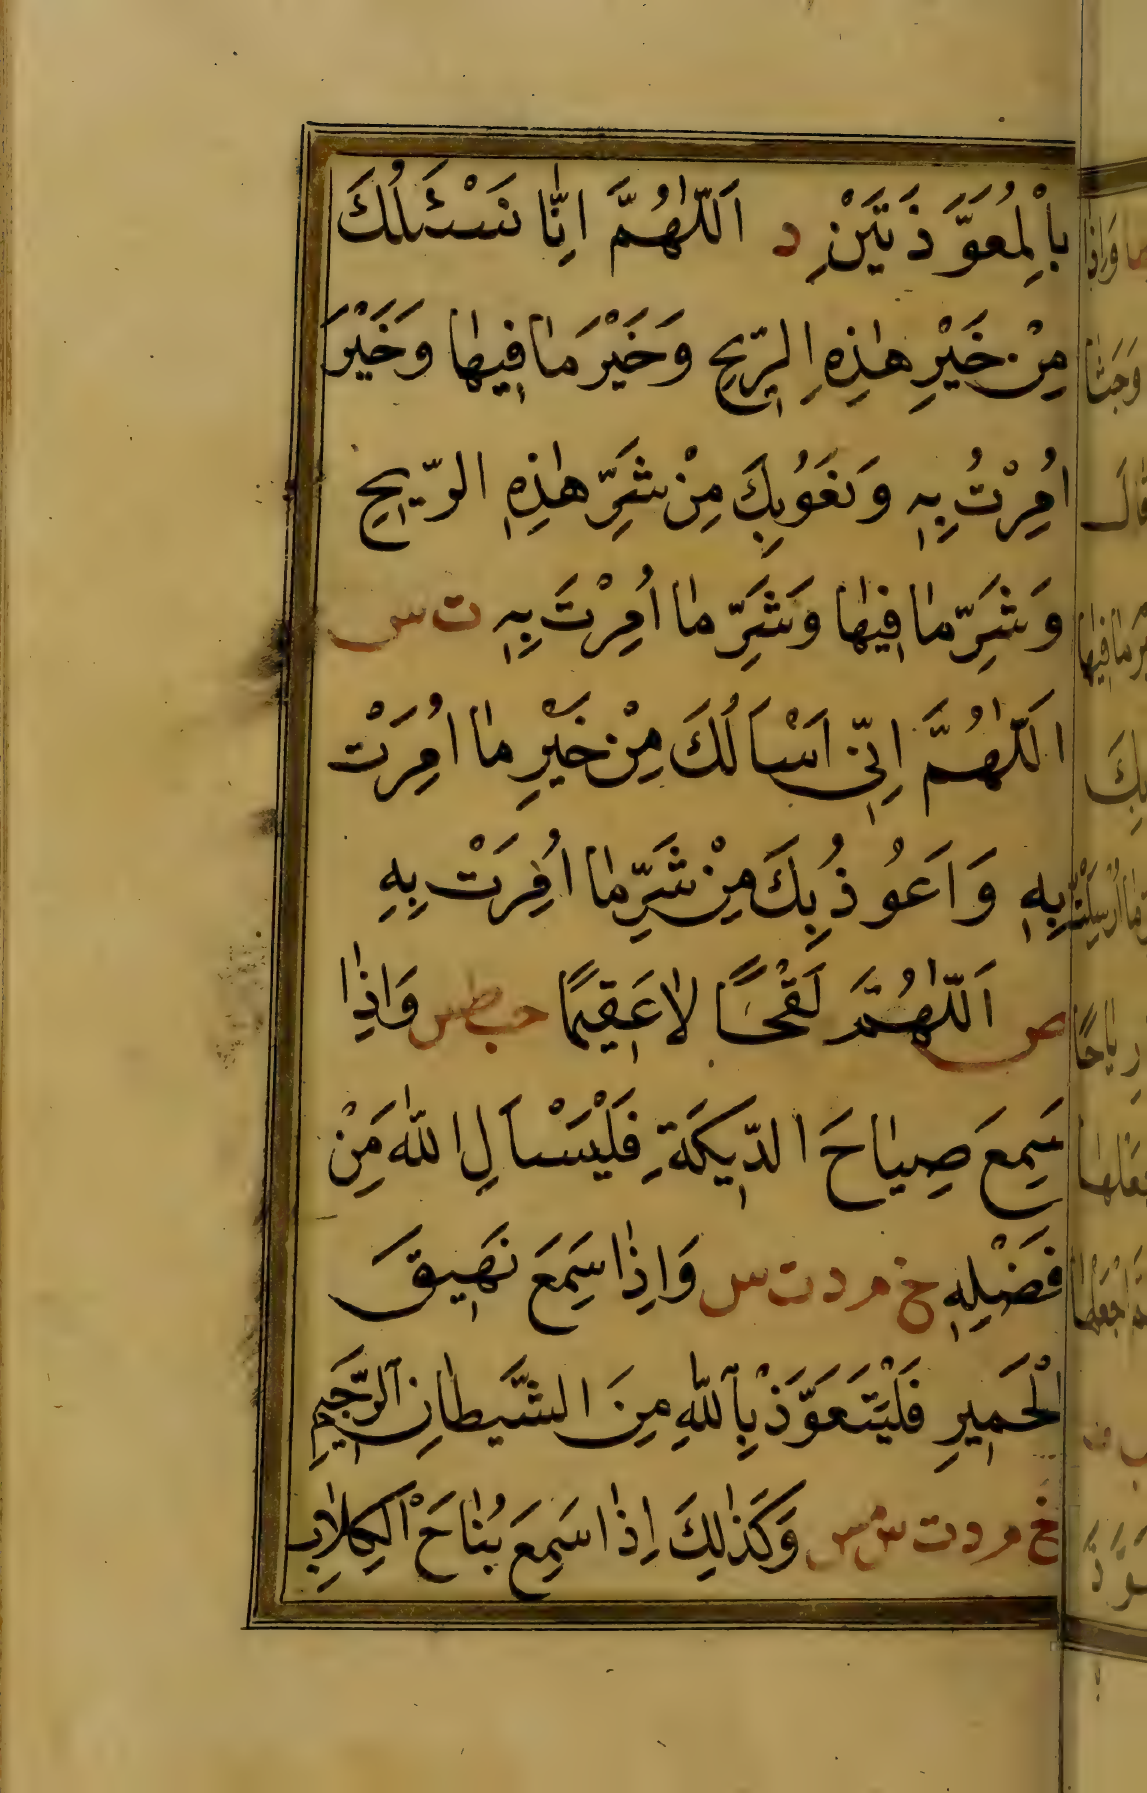 بِالْمُعَوِّذَتَيْنِ د اَللّٰهُمَّ اِنَّا نَسْئَلُكَ
مِنْ خَيْرِ هٰذِهِ الرِّيحِ وَخَيْرَ مَا فِيهَا وَخَيْرَ
اُمِرْتُ بِهٖ وَنَعُوبِكَ مِنْ شَرِّ هٰذِهِ الرِّيحِ
وَشَرِّ مَا فِيهَا وَشَرِّ مَا اُمِرْتَ بِهٖ ت س
اَللّٰهُمَّ اِنِّى اَسْاَلُكَ مِنْ خَيْرِ مَا اُمِرَتْ
بِهٖ وَاَعُوذُ بِكَ مِنْ شَرِّ مَا اُمِرَتْ بِهِ
ص اَللّٰهُمَّ لَقْحًا لَا عَقِيمًا حب طس وَاِذَا
سَمِعَ صِيَاحَ الدِّيكَةِ فَلْيَسْاَلِ اللّٰهَ مِنْ
فَضْلِهٖ خ م د ت س وَاِذَا سَمِعَ نَهِيقَ
الْحَمِيرِ فَلْيَتَعَوَّذْ بِاللّٰهِ مِنَ الشَّيْطَانِ الرَّجِيمِ
خ م د ت س مس وَكَذٰلِكَ اِذَا سَمِعَ نُبَاحَ الْكِلَابِ